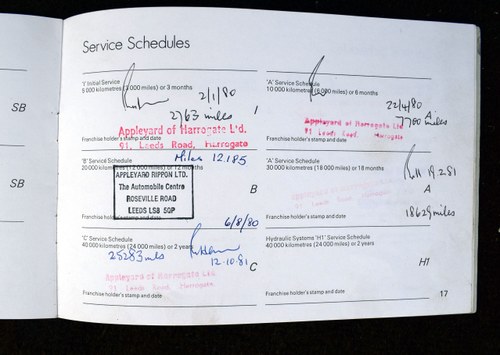 Service Schedules
'I' Initial Service
5 000 kilometres (3 000 miles) or 3 months
2/1/80
2763 miles
I
Appleyard of Harrogate Ltd.
91, Leeds Road, Harrogate
Franchise holder's stamp and date
'A' Service Schedule
10 000 kilometres (6 000 miles) or 6 months
22/4/80
A
7700 miles
Appleyard of Harrogate Ltd.
91 Leeds Road, Harrogate
Franchise holder's stamp and date
'B' Service Schedule
Miles 12.185
20 000 kilometres (12 000 miles) or 12 months
APPLEYARD RIPPON LTD.
The Automobile Centre
ROSEVILLE ROAD
LEEDS LS8 5QP
B
6/8/80
Franchise holder's stamp and date
'A' Service Schedule
30 000 kilometres (18 000 miles) or 18 months
19.2.81
A
18629 miles
Franchise holder's stamp and date
'C' Service Schedule
40 000 kilometres (24 000 miles) or 2 years
25283 mls
12.10.81
C
Appleyard of Harrogate Ltd
91 Leeds Road, Harrogate
Franchise holder's stamp and date
Hydraulic Systems 'H1' Service Schedule
40 000 kilometres (24 000 miles) or 2 years
H1
Franchise holder's stamp and date
17
SB
SB